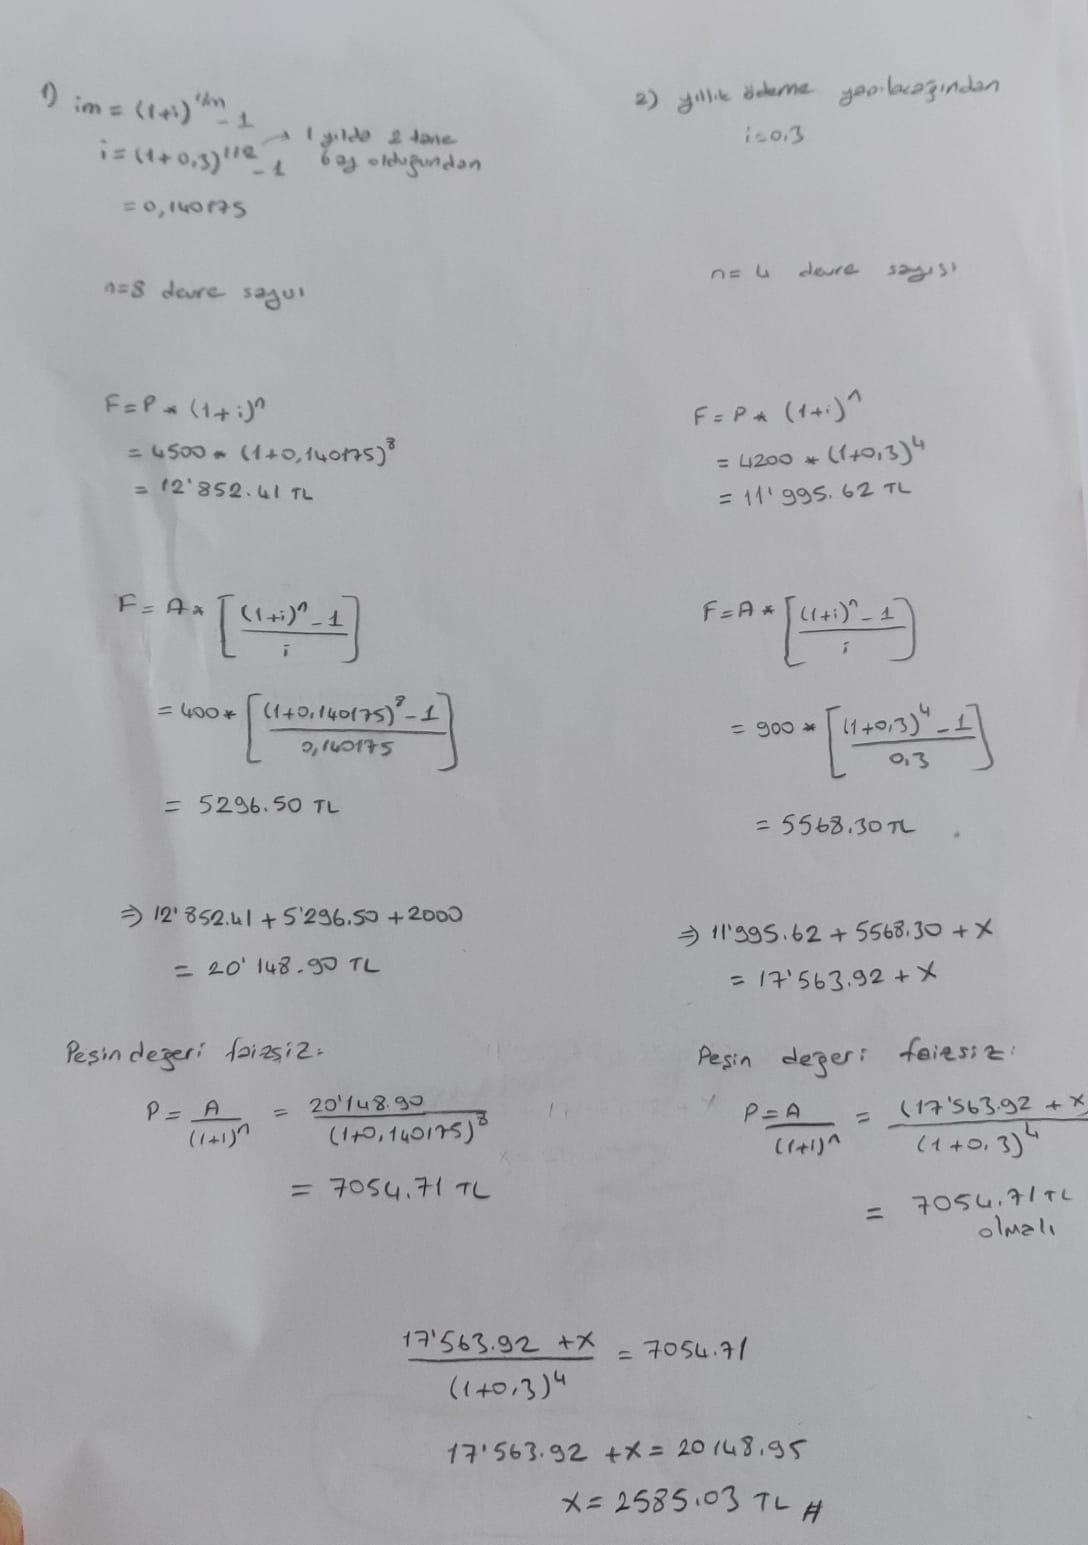 1) im = (1+i)^1/m - 1
i = (1+0,3)^1/2 - 1 → 1 yılda 2 tane 6 ay olduğundan
= 0,140175
n=8 devre sayısı
F = P * (1+i)^n
= 4500 * (1+0,140175)^8
= 12'852.41 TL
F = A * [((1+i)^n - 1) / i]
= 400 * [((1+0,140175)^8 - 1) / 0,140175]
= 5296.50 TL
⇒ 12'852.41 + 5'296.50 + 2000
= 20'148.90 TL
Peşin değeri faizsiz:
P = A / (1+i)^n = 20'148.90 / (1+0,140175)^8
= 7054,71 TL
2) yıllık ödeme yapılacağından
i=0,3
n= 4 devre sayısı
F = P * (1+i)^n
= 4200 * (1+0,3)^4
= 11'995.62 TL
F = A * [((1+i)^n - 1) / i]
= 900 * [((1+0,3)^4 - 1) / 0,3]
= 5568,30 TL
⇒ 11'995.62 + 5568.30 + X
= 17'563.92 + X
Peşin değeri faizsiz:
P = A / (1+i)^n = (17'563.92 + X / (1+0,3)^4
= 7054,71 TL
olmalı
17'563.92 + X / (1+0,3)^4 = 7054.71
17'563.92 + X = 20148,95
X = 2585.03 TL //